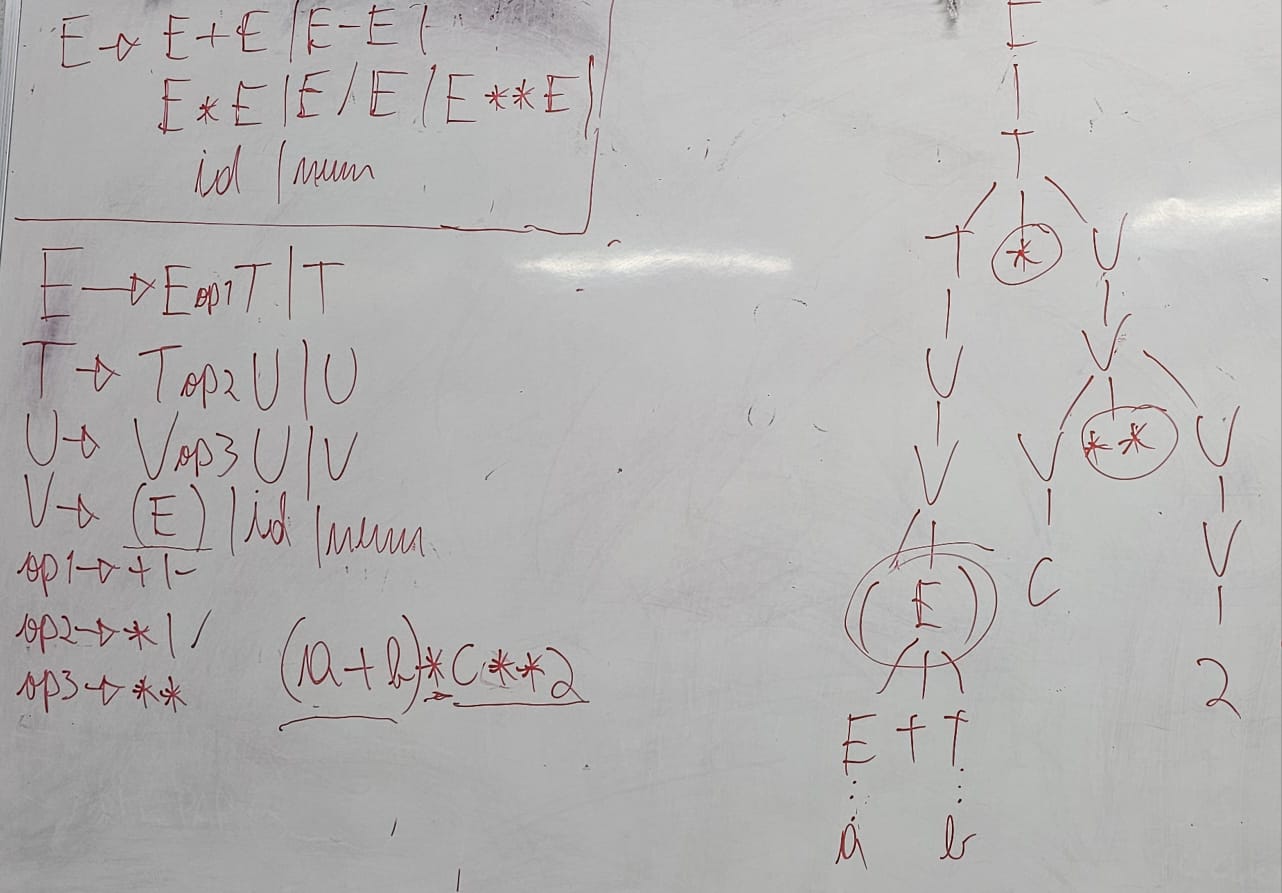 E → E+E | E-E |
E*E | E/E | E**E |
id | num
E → E op1 T | T
T → T op2 U | U
U → V op3 U | V
V → (E) | id | num
op1 → + | -
op2 → * | /
op3 → **
(a+b)*C**2
E
T
T * U
U V
V V ** U
( E ) C V
2
E + T
a b